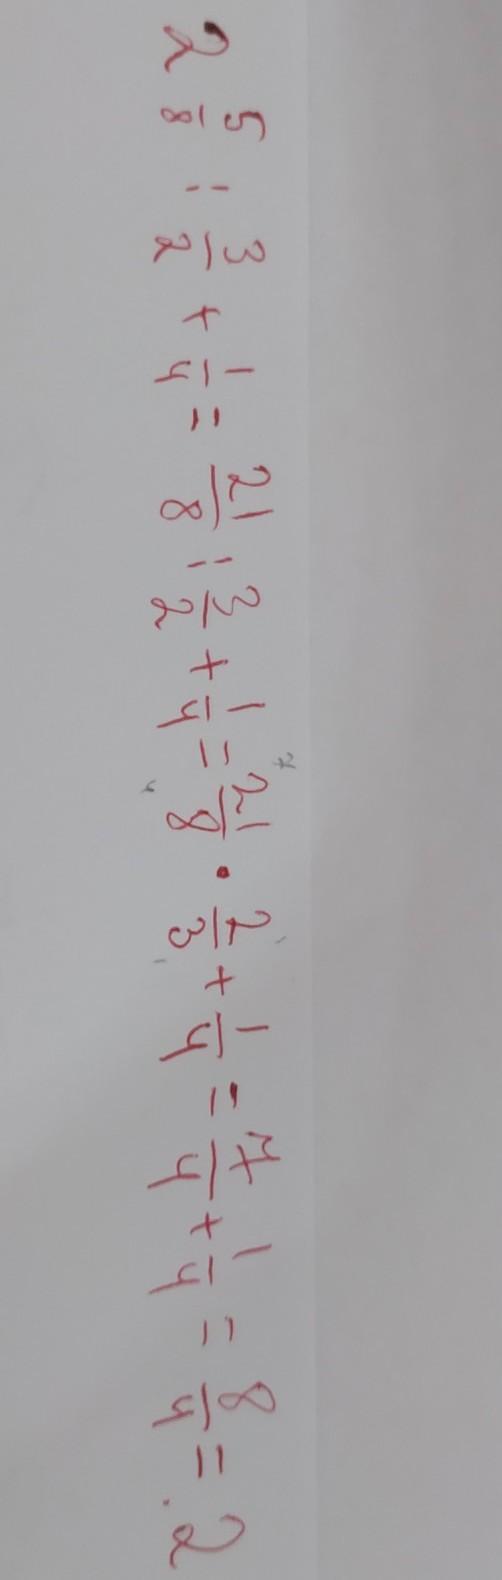 2 5/8 : 3/2 + 1/4 = 21/8 : 3/2 + 1/4 = 21/8 · 2/3 + 1/4 = 7/4 + 1/4 = 8/4 = 2